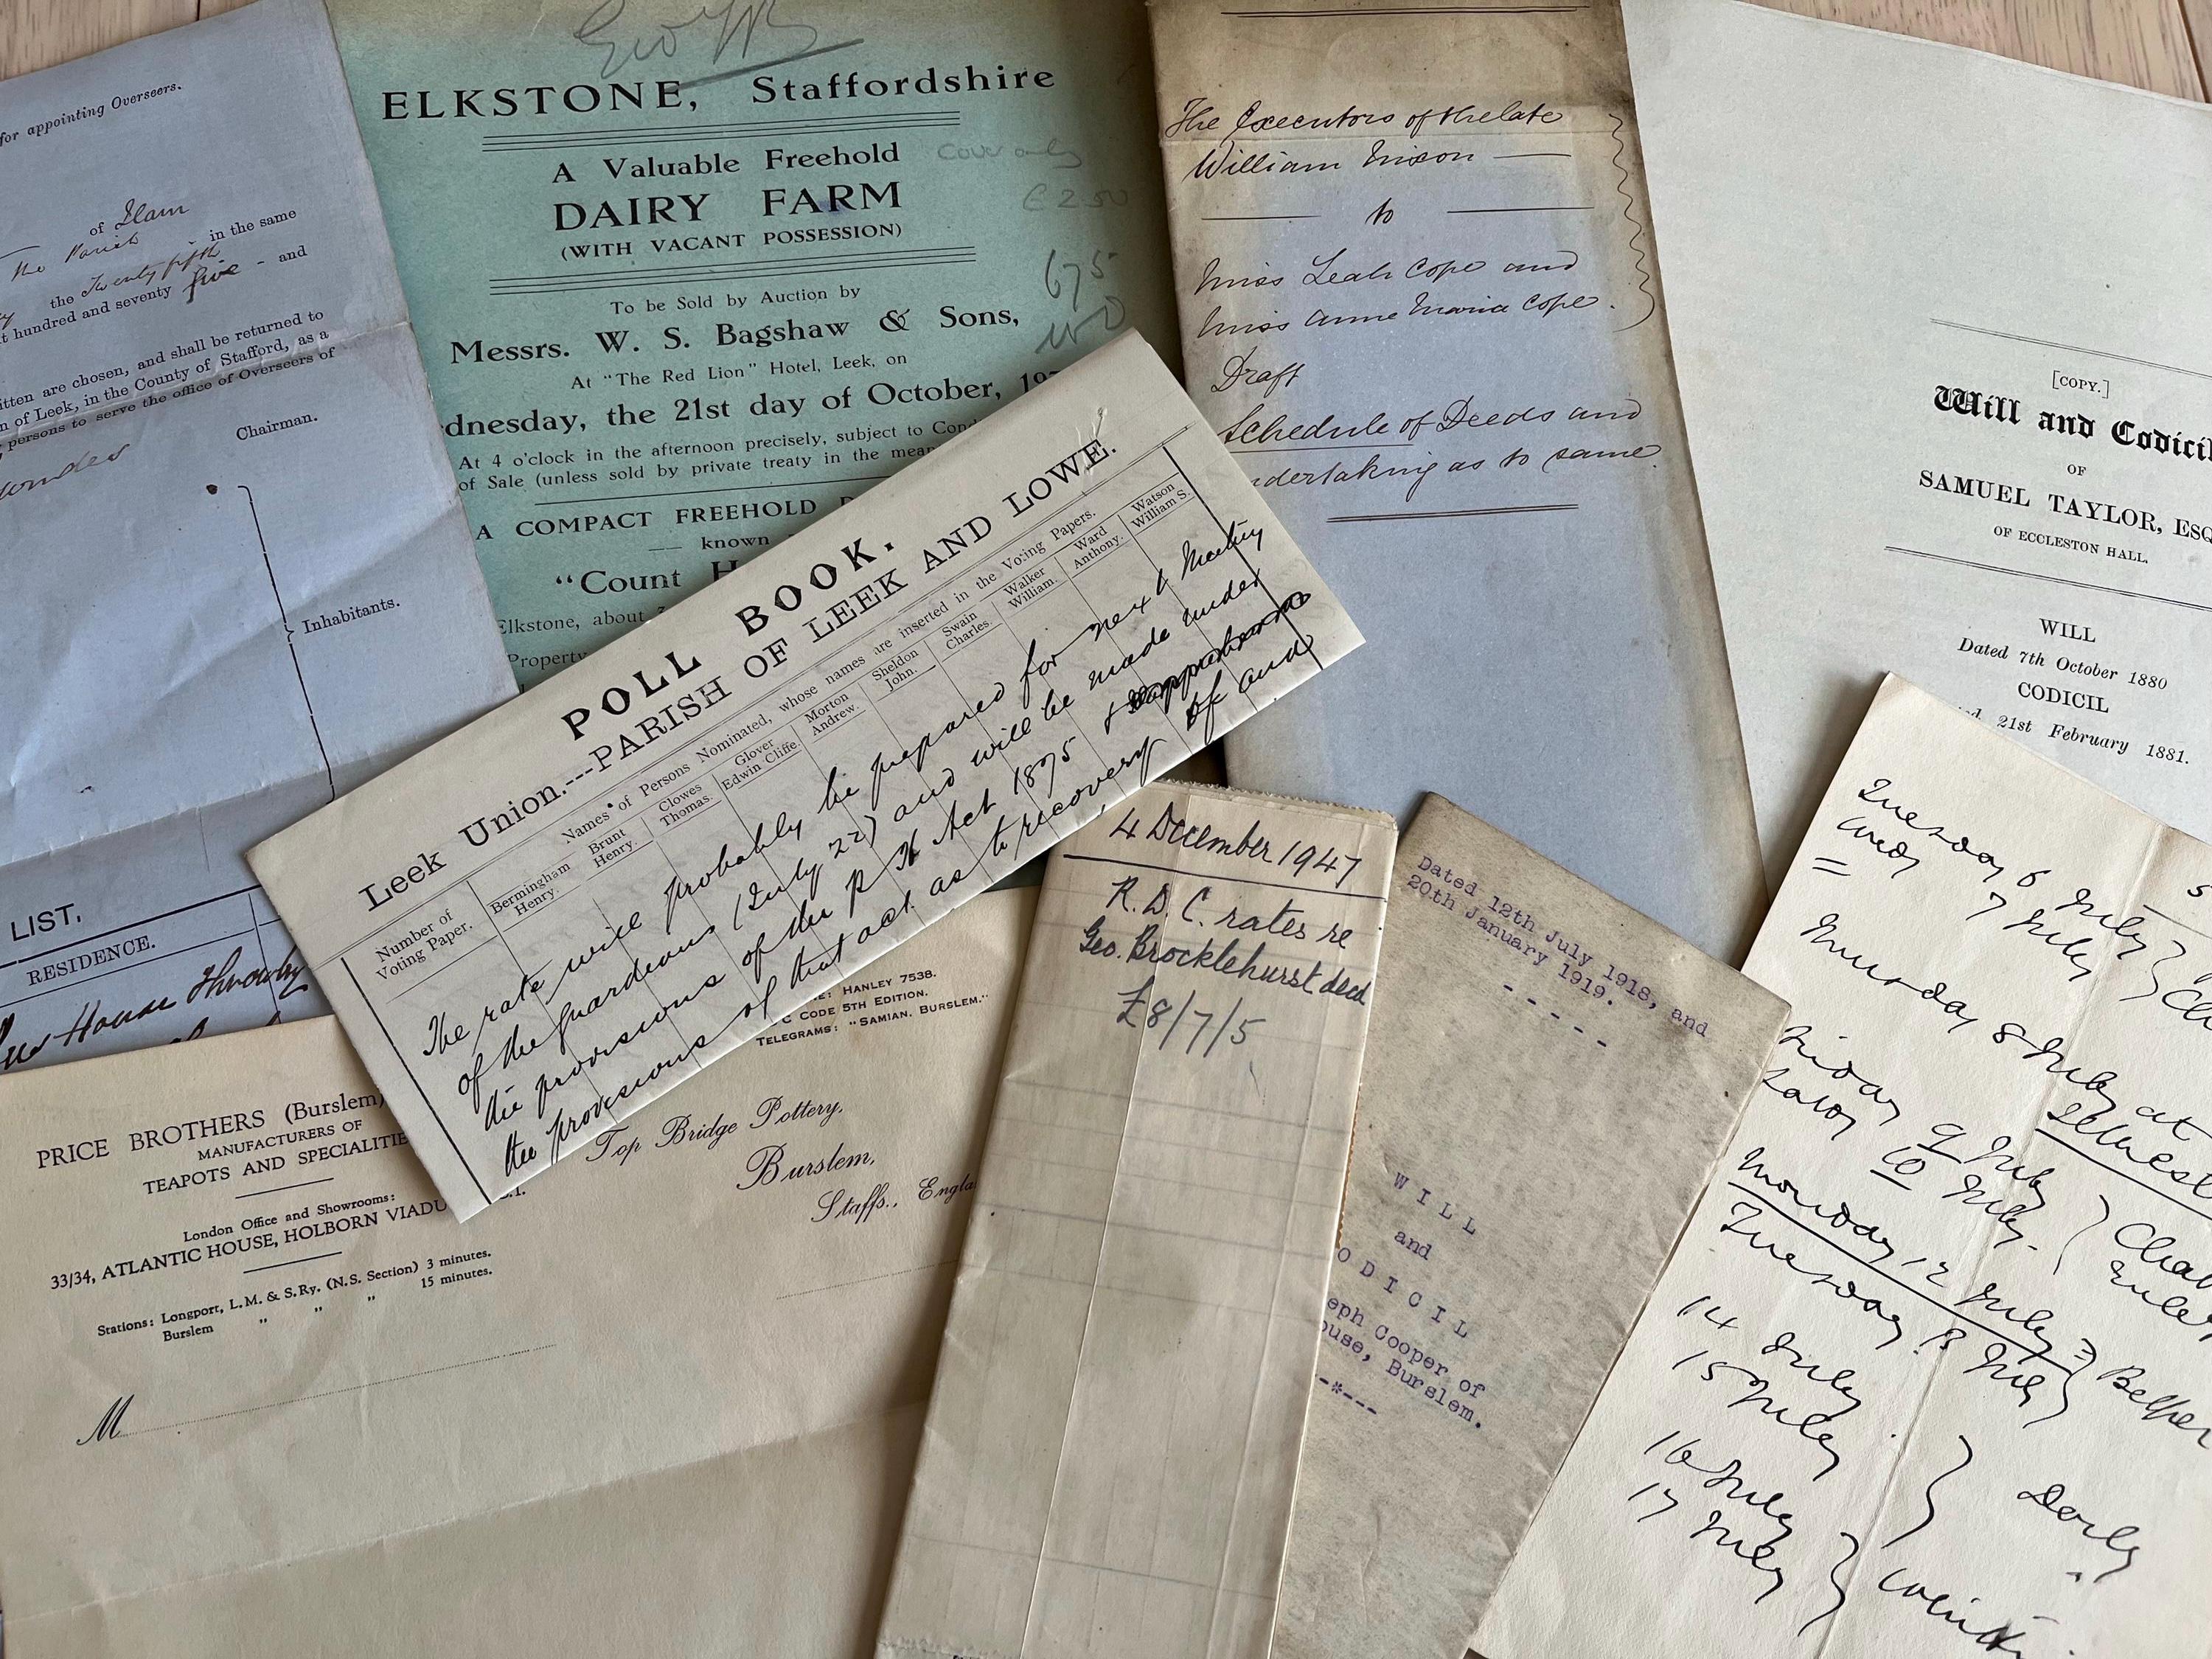 for appointing Overseers.
of Ilam
The Parish in the same
the Twenty fifth
hundred and seventy five - and
itten are chosen, and shall be returned to
n of Leek, in the County of Stafford, as a
persons to serve the office of Overseers of
Chairman.
Inhabitants.
LIST,
RESIDENCE.
House Throwley
ELKSTONE, Staffordshire
A Valuable Freehold
Cover only
DAIRY FARM
£250
(WITH VACANT POSSESSION)
675
To be Sold by Auction by
Messrs. W. S. Bagshaw & Sons,
At "The Red Lion" Hotel, Leek, on
dnesday, the 21st day of October, 19
At 4 o'clock in the afternoon precisely, subject to
of Sale (unless sold by private treaty in the
A COMPACT FREEHOLD
known
"Count H
Elkstone, about
Property
The Executors of the late
William Nixon
to
Miss Leah Cope and
Miss Anne Maria Cope.
Draft
Schedule of Deeds and
undertaking as to same.
[COPY.]
Will and Codicil
OF
SAMUEL TAYLOR, ESQ
OF ECCLESTON HALL.
WILL
Dated 7th October 1880
CODICIL
21st February 1881.
POLL BOOK.
Leek Union.---PARISH OF LEEK AND LOWE.
Names of Persons Nominated, whose names are inserted in the Voting Papers.
Number of Voting Paper.
Bermingham Henry.
Brunt Henry.
Clowes Thomas.
Glover Edwin Cliffe.
Morton Andrew.
Sheldon John.
Swain Charles.
Walker William.
Ward Anthony.
Watson William S.
The rate will probably be prepared for next Meeting
of the Guardians (July 22) and will be made under
the provisions of the P H Act 1875 &
the provisions of that act as to recovery &c and
PRICE BROTHERS (Burslem)
MANUFACTURERS OF
TEAPOTS AND SPECIALITIE
London Office and Showrooms:
33/34, ATLANTIC HOUSE, HOLBORN VIADU
Stations: Longport, L.M. & S.Ry. (N.S. Section) 3 minutes.
Burslem " " 15 minutes.
M
HANLEY 7538.
CODE 5TH EDITION.
TELEGRAMS: "SAMIAN, BURSLEM."
Top Bridge Pottery,
Burslem,
Staffs., Engla
4 December 1947
R.D.C. rates re
Geo. Brocklehurst decd
£8/7/5
Dated 12th July 1918, and
20th January 1919.
WILL
and
ODICIL
eph Cooper of
ouse, Burslem.
5
Tuesday 6 July
Wedy 7 July
Thursday 8 July at
Friday 9 July
Satdy 10 July.
Monday 12 July
Tuesday 13 July
Belper
14 July
15 July
Derby
16 July
17 July